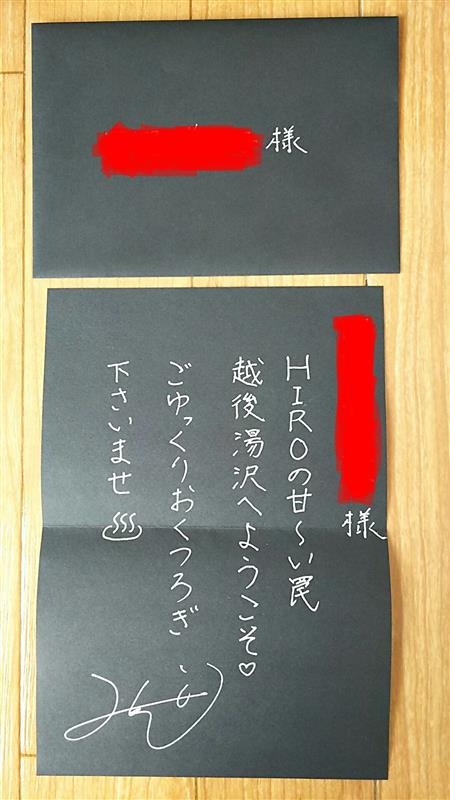 様
様
HIROの甘〜い罠
越後湯沢へようこそ♡
ごゆっくりおくつろぎ
下さいませ♨